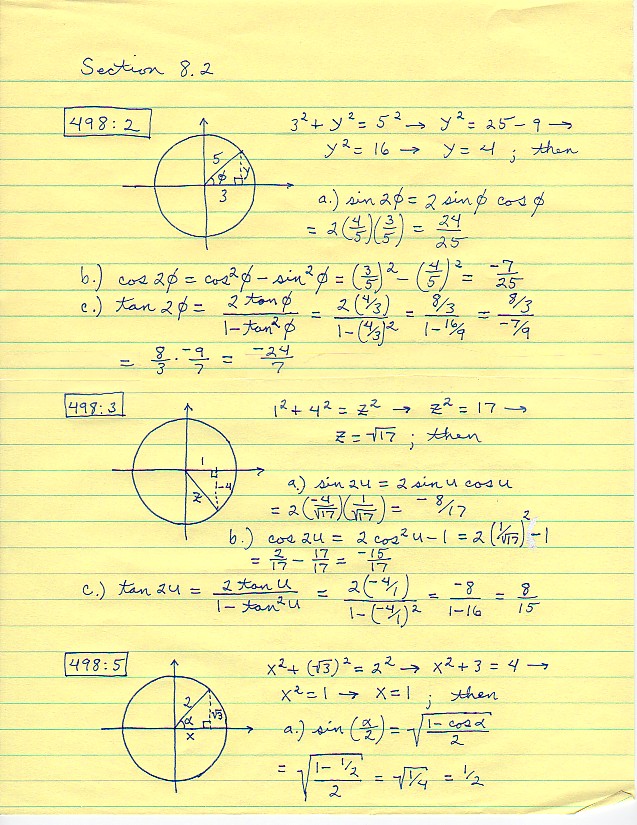 Section 8.2
498:2
3² + y² = 5² → y² = 25 - 9 →
y² = 16 → y = 4 ; then
5
y
ϕ
3
a.) sin 2ϕ = 2 sin ϕ cos ϕ
= 2(4/5)(3/5) = 24/25
b.) cos 2ϕ = cos² ϕ - sin² ϕ = (3/5)² - (4/5)² = -7/25
c.) tan 2ϕ = 2 tan ϕ / 1 - tan² ϕ = 2(4/3) / 1 - (4/3)² = 8/3 / 1 - 16/9 = 8/3 / -7/9
= 8/3 · -9/7 = -24/7
498:3
1² + 4² = z² → z² = 17 →
z = √17 ; then
1
-4
z
a.) sin 2u = 2 sin u cos u
= 2(-4/√17)(1/√17) = -8/17
b.) cos 2u = 2 cos² u - 1 = 2(1/√17)² - 1
= 2/17 - 17/17 = -15/17
c.) tan 2u = 2 tan u / 1 - tan² u = 2(-4/1) / 1 - (-4/1)² = -8 / 1 - 16 = 8/15
498:5
x² + (√3)² = 2² → x² + 3 = 4 →
x² = 1 → x = 1 ; then
2
√3
α
x
a.) sin (α/2) = √(1 - cos α / 2)
= √(1 - 1/2 / 2) = √1/4 = 1/2